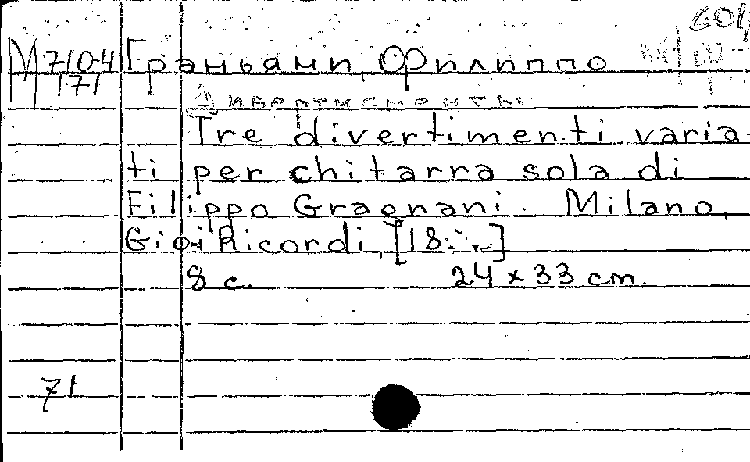 М 710-4 Граньани, Филиппо
171
Дивертисменты
Tre divertimenti varia
ti per chitarra sola di
Filippo Gragnani. Milano,
Gio Ricordi, [18
8 с. 24 x 33 cm.
71